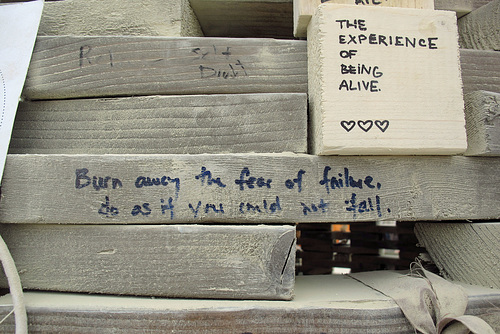 THE
EXPERIENCE
OF
BEING
ALIVE.
Self
Doubt
Burn away the fear of failure.
do as if you could not fall.